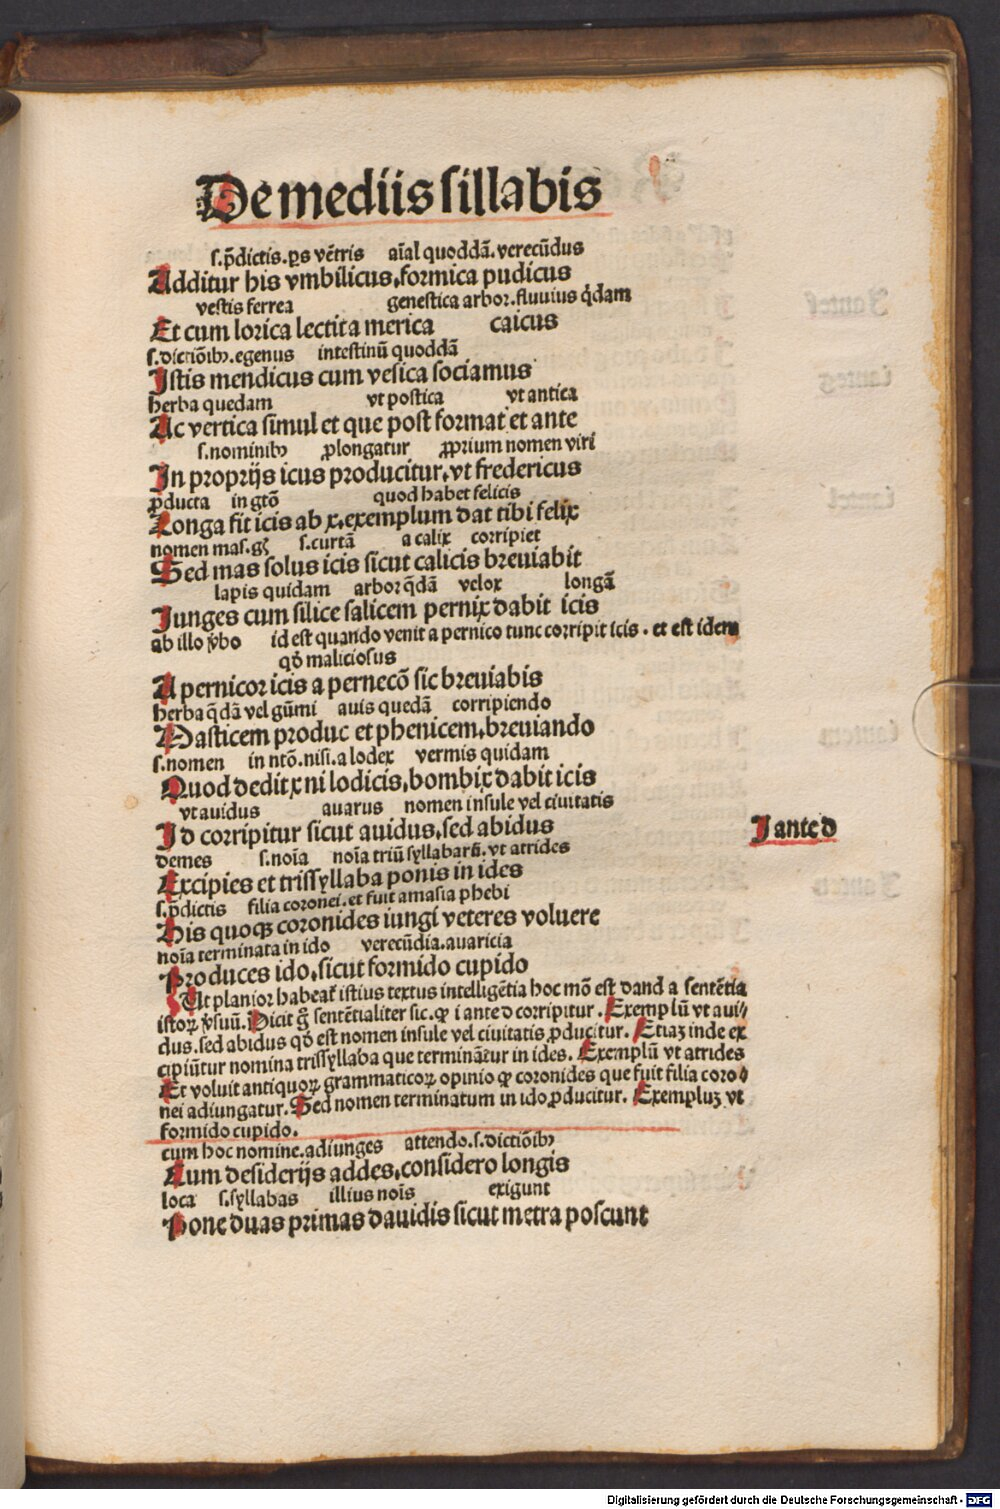 De mediis sillabis
ſ.p̄dictis.ꝑs vētris aīal quoddā.verecūdus
Additur his vmbilicus,formica pudicus
veſtis ferrea geneſtica arbor.fluuius q̄dam
Et cum lorica lectita merica caicus
ſ.dictiōibꝰ.egenus inteſtinū quoddā
Iſtis mendicus cum veſica ſociamus
herba quedam vt poſtica vt antica
Ac vertica ſimul et que poſt format et ante
ſ.nominibꝰ ꝓlongatur ꝓprium nomen viri
In proprijs icus producitur,vt fredericus
ꝓducta in gtō quod habet felicis
Longa fit icis ab x,exemplum dat tibi felix
nomen maſ.gꝭ ſ.curtā a calix corripiet
Sed mas ſolus icis ſicut calicis breuiabit
lapis quidam arbor q̄dā velox longā
Iunges cum ſilice ſalicem pernix dabit icis
ab illo v̄bo id eſt quando venit a pernico tunc corripit icis. et eſt idem
qđ malicioſus
A pernicor icis a pernecō ſic breuiabis
herba q̄dā vel gūmi auis quedā corripiendo
Maſticem produc et phenicem,breuiando
ſ.nomen in ntō.niſi.a lodex vermis quidam
Quod dedit x ni lodicis,bombix dabit icis
vt auidus auarus nomen inſule vel ciuitatis
Id corripitur ſicut auidus,ſed abidus
I ante d
demes ſ.noīa noīa triū ſyllabarū.vt atrides
Excipies et triſſyllaba ponis in ides
ſ.p̄dictis filia coronei.et fuit amaſia phebi
His quoqꝫ coronides iungi veteres voluere
noīa terminata in ido verecūdia.auaricia
Produces ido,ſicut formido cupido
Ut planior habeat̄ iſtius textus intelligētia hoc mō eſt dand a ſentētia
iſtoꝝ v̄ſuū.Dicit g̊ ſentētialiter ſic.ꝙ i ante d corripitur.Exemplū vt aui⸗
dus.ſed abidus qđ eſt nomen inſule vel ciuitatis ꝓducitur. Etiaꝫ inde ex
cipiūtur nomina triſſyllaba que termināt̄ur in ides. Exemplū vt atrides
Et voluit antiquoꝝ grammaticoꝝ opinio ꝙ coronides que fuit filia coro⸗
nei adiungatur.Sed nomen terminatum in ido ꝓducitur. Exempluꝫ vt
formido cupido.
cum hoc nomine.adiunges attendo.ſ.dictiōibꝰ
Cum deſiderijs addes,conſidero longis
loca ſ.ſyllabas illius noīs exigunt
Pone duas primas dauidis ſicut metra poſcunt
Digitalisierung gefördert durch die Deutsche Forschungsgemeinschaft - DFG